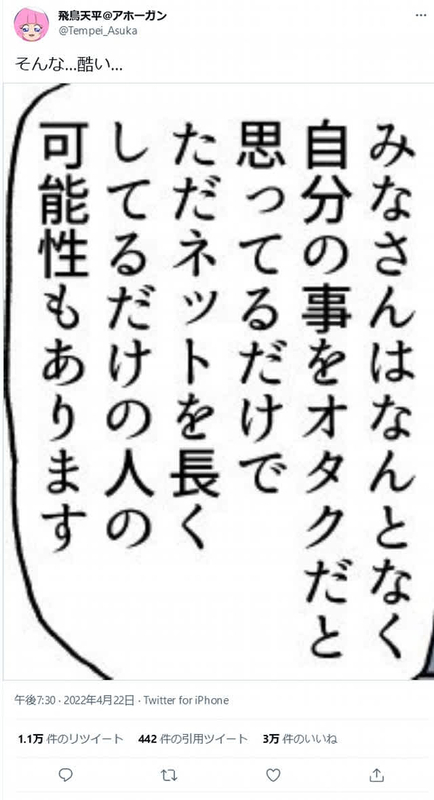 飛鳥天平@アホーガン
@Tempei_Asuka
そんな...酷い...
みなさんはなんとなく
自分の事をオタクだと
思ってるだけで
ただネットを長く
してるだけの人の
可能性もあります
午後7:30 · 2022年4月22日 · Twitter for iPhone
1.1万 件のリツイート 442 件の引用ツイート 3万 件のいいね